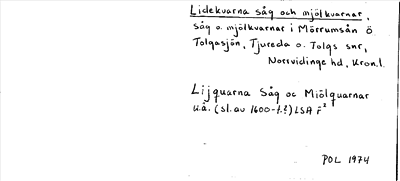 Lidekvarna såg och mjölkvarnar,
såg o. mjölkvarnar i Mörrumsån ö
Tolgasjön, Tjureda o. Tolgs snr,
Norrvidinge hd, Kron.l.
Lijquarna Såg oc Miölquarnar
u.å. (sl. av 1600-t.?) LSA F²
POL 1974